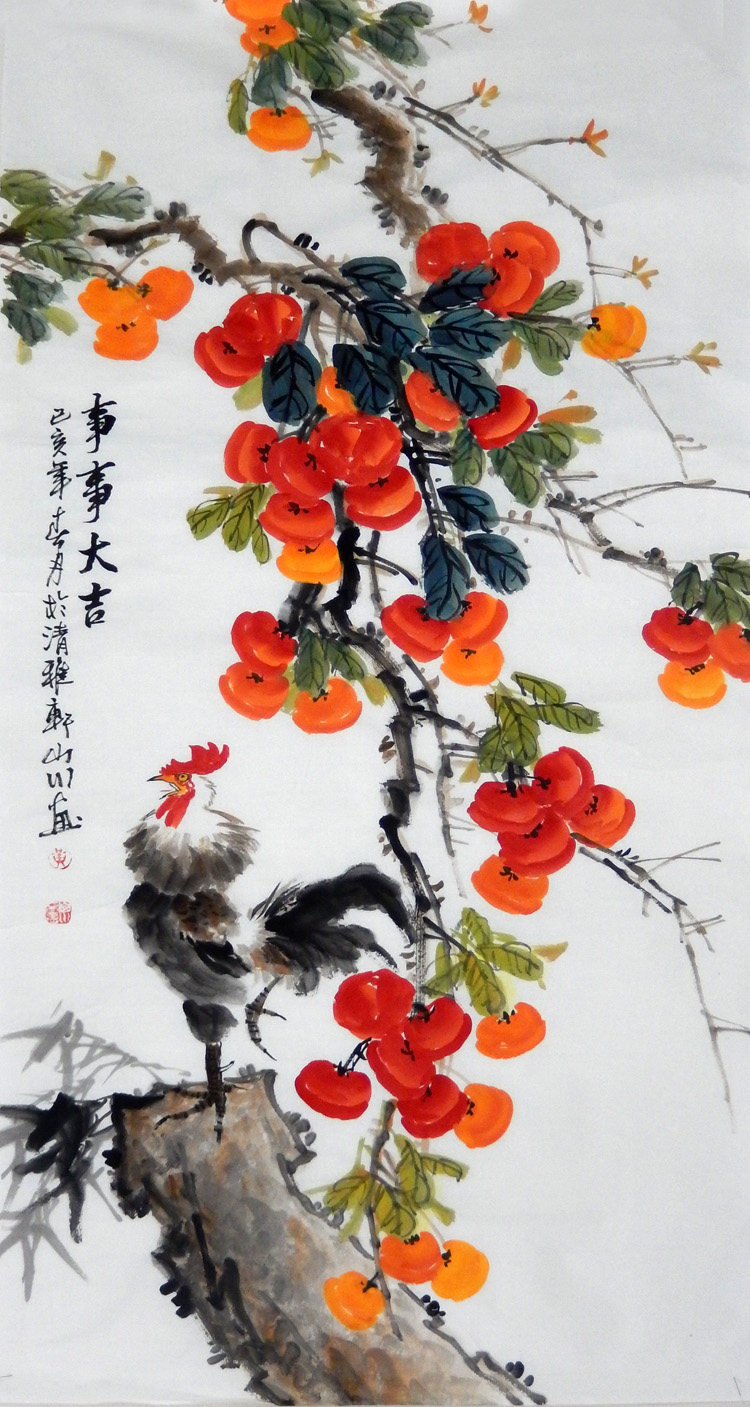 事事大吉
己亥年春月於清雅軒山川画